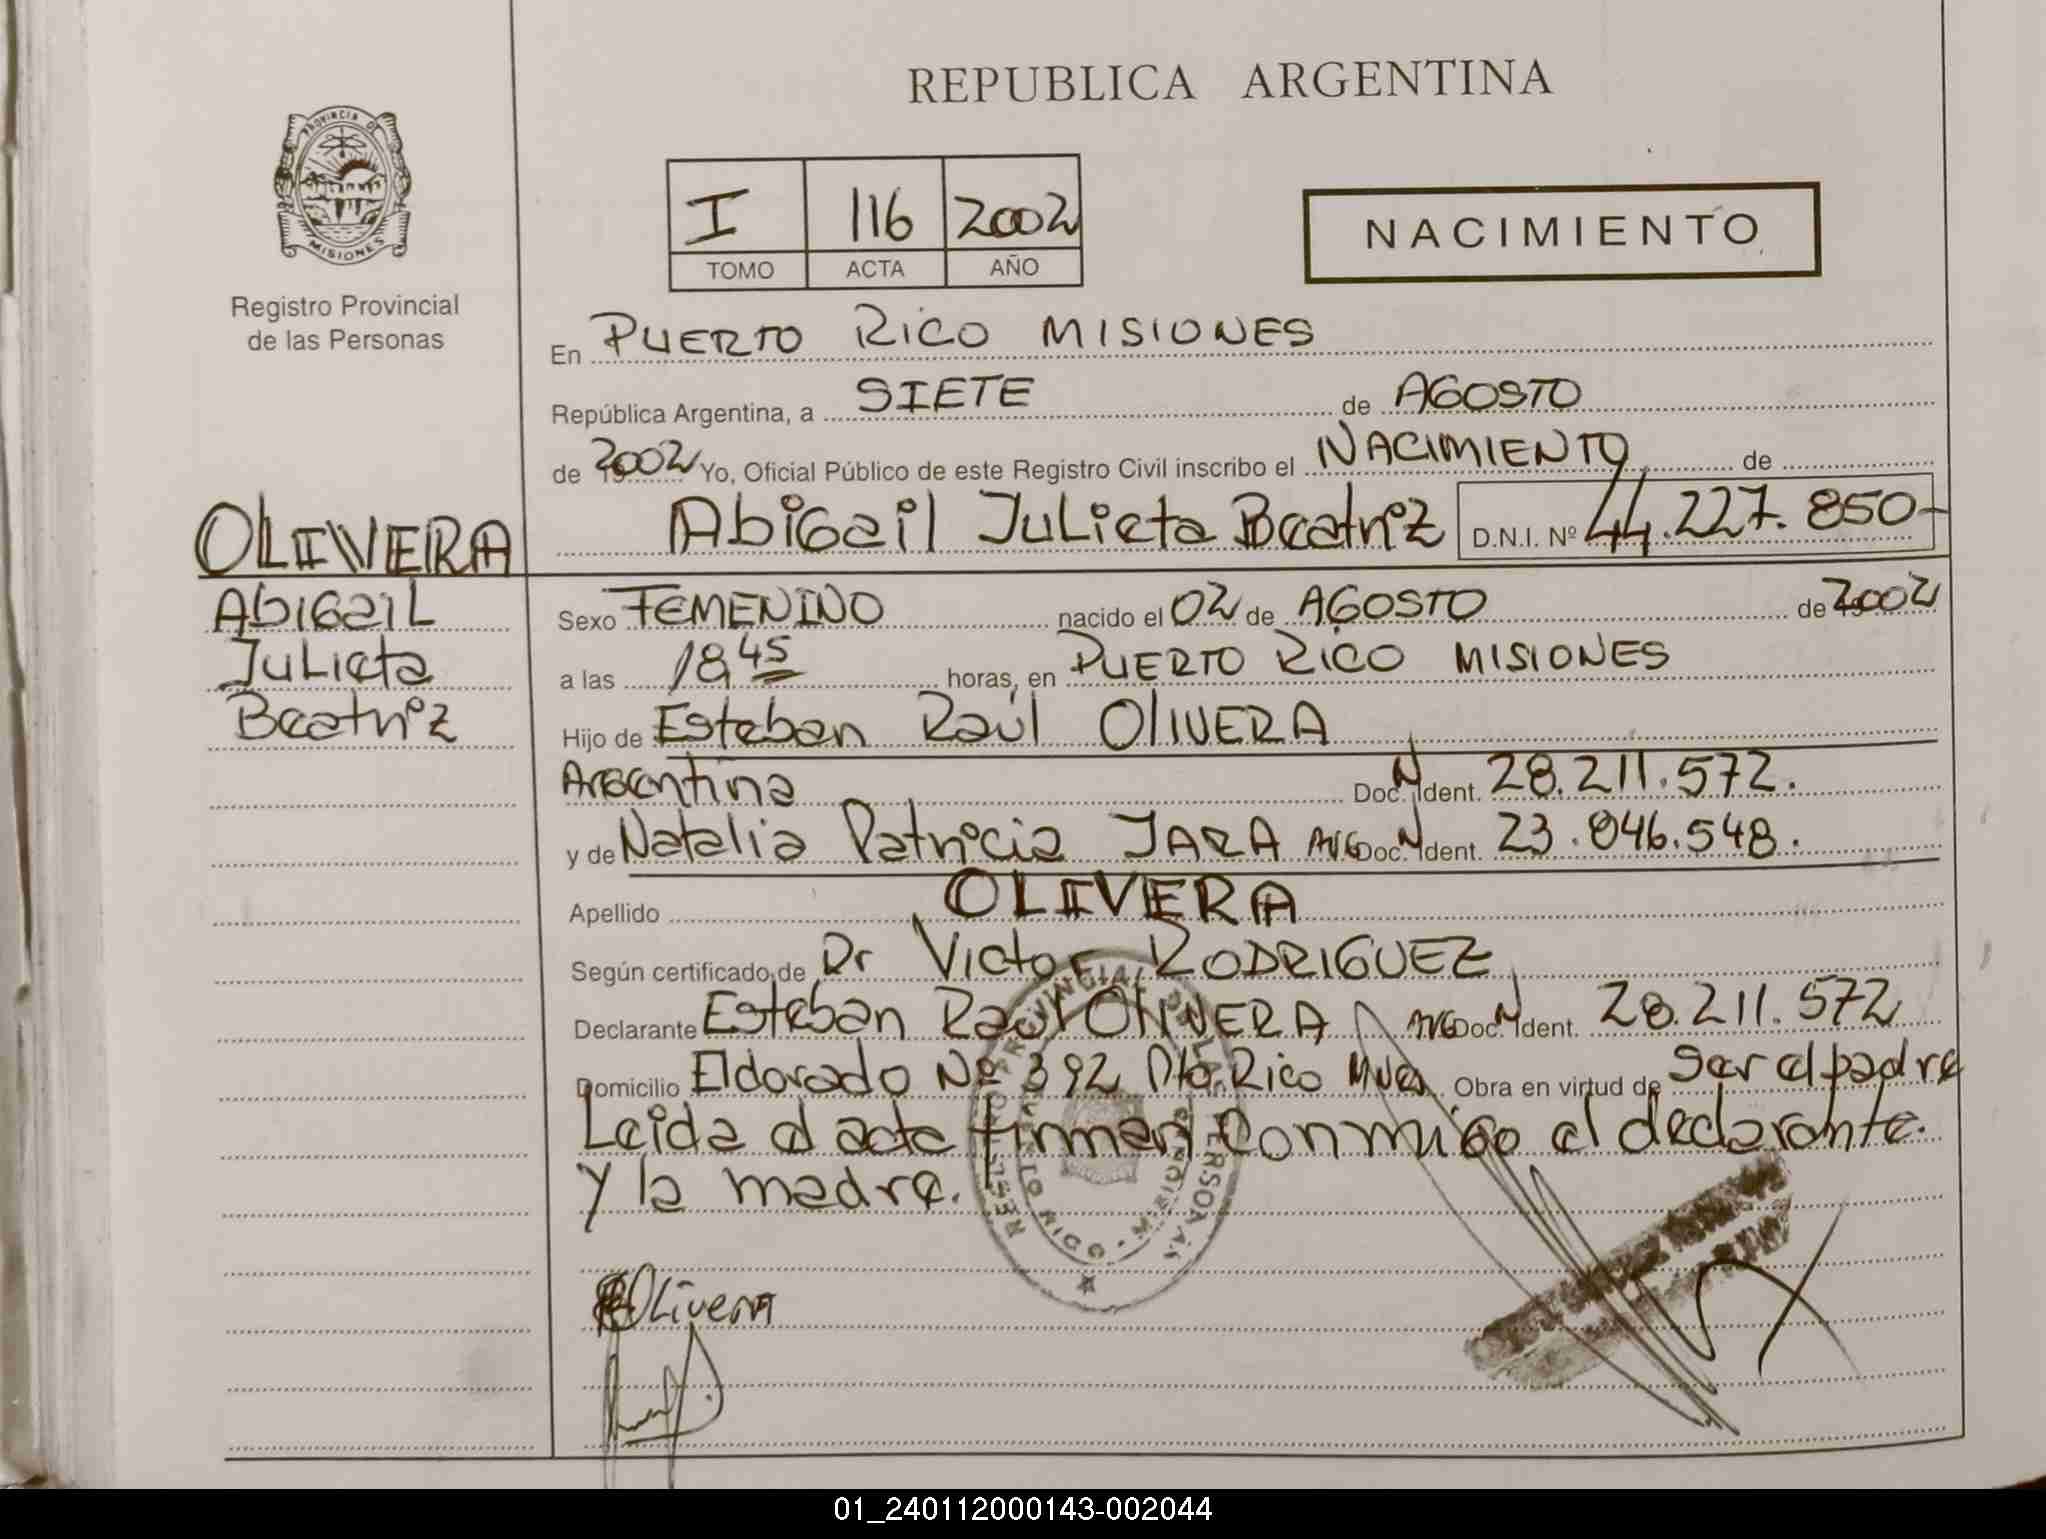 REPUBLICA ARGENTINA
PROVINCIA DE
MISIONES
Registro Provincial
de las Personas
I 116 2002
TOMO ACTA AÑO
NACIMIENTO
En PUERTO RICO MISIONES
República Argentina, a SIETE de AGOSTO
de 2002 Yo, Oficial Público de este Registro Civil inscribo el NACIMIENTO de
Abigail Julieta Beatriz D.N.I. Nº 44.227.850-
OLIVERA
Abigail
Julieta
Beatriz
Sexo FEMENINO nacido el 02 de AGOSTO de 2002
a las 18 45 horas, en PUERTO RICO MISIONES
Hijo de Esteban Raúl OlIVERA
Argentina Doc. N Ident. 28.211.572.
y de Natalia Patricia JARA ARG Doc. N Ident. 23.846.548.
Apellido OLIVERA
Según certificado de Dr Victor RODRIGUEZ
Declarante Esteban Raúl OlIVERA ARG Doc. N Ident. 28.211.572
Domicilio Eldorado Nº 392 Pto. Rico Mnes. Obra en virtud de ser el padre
Leida el acta firman conmigo el declarante.
y la madre.
Olivera
01_240112000143-002044